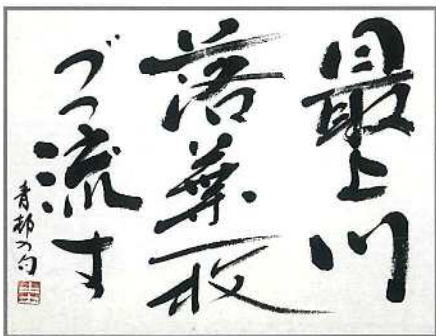 最上川
落葉一枚
づつ流す
青邨の句